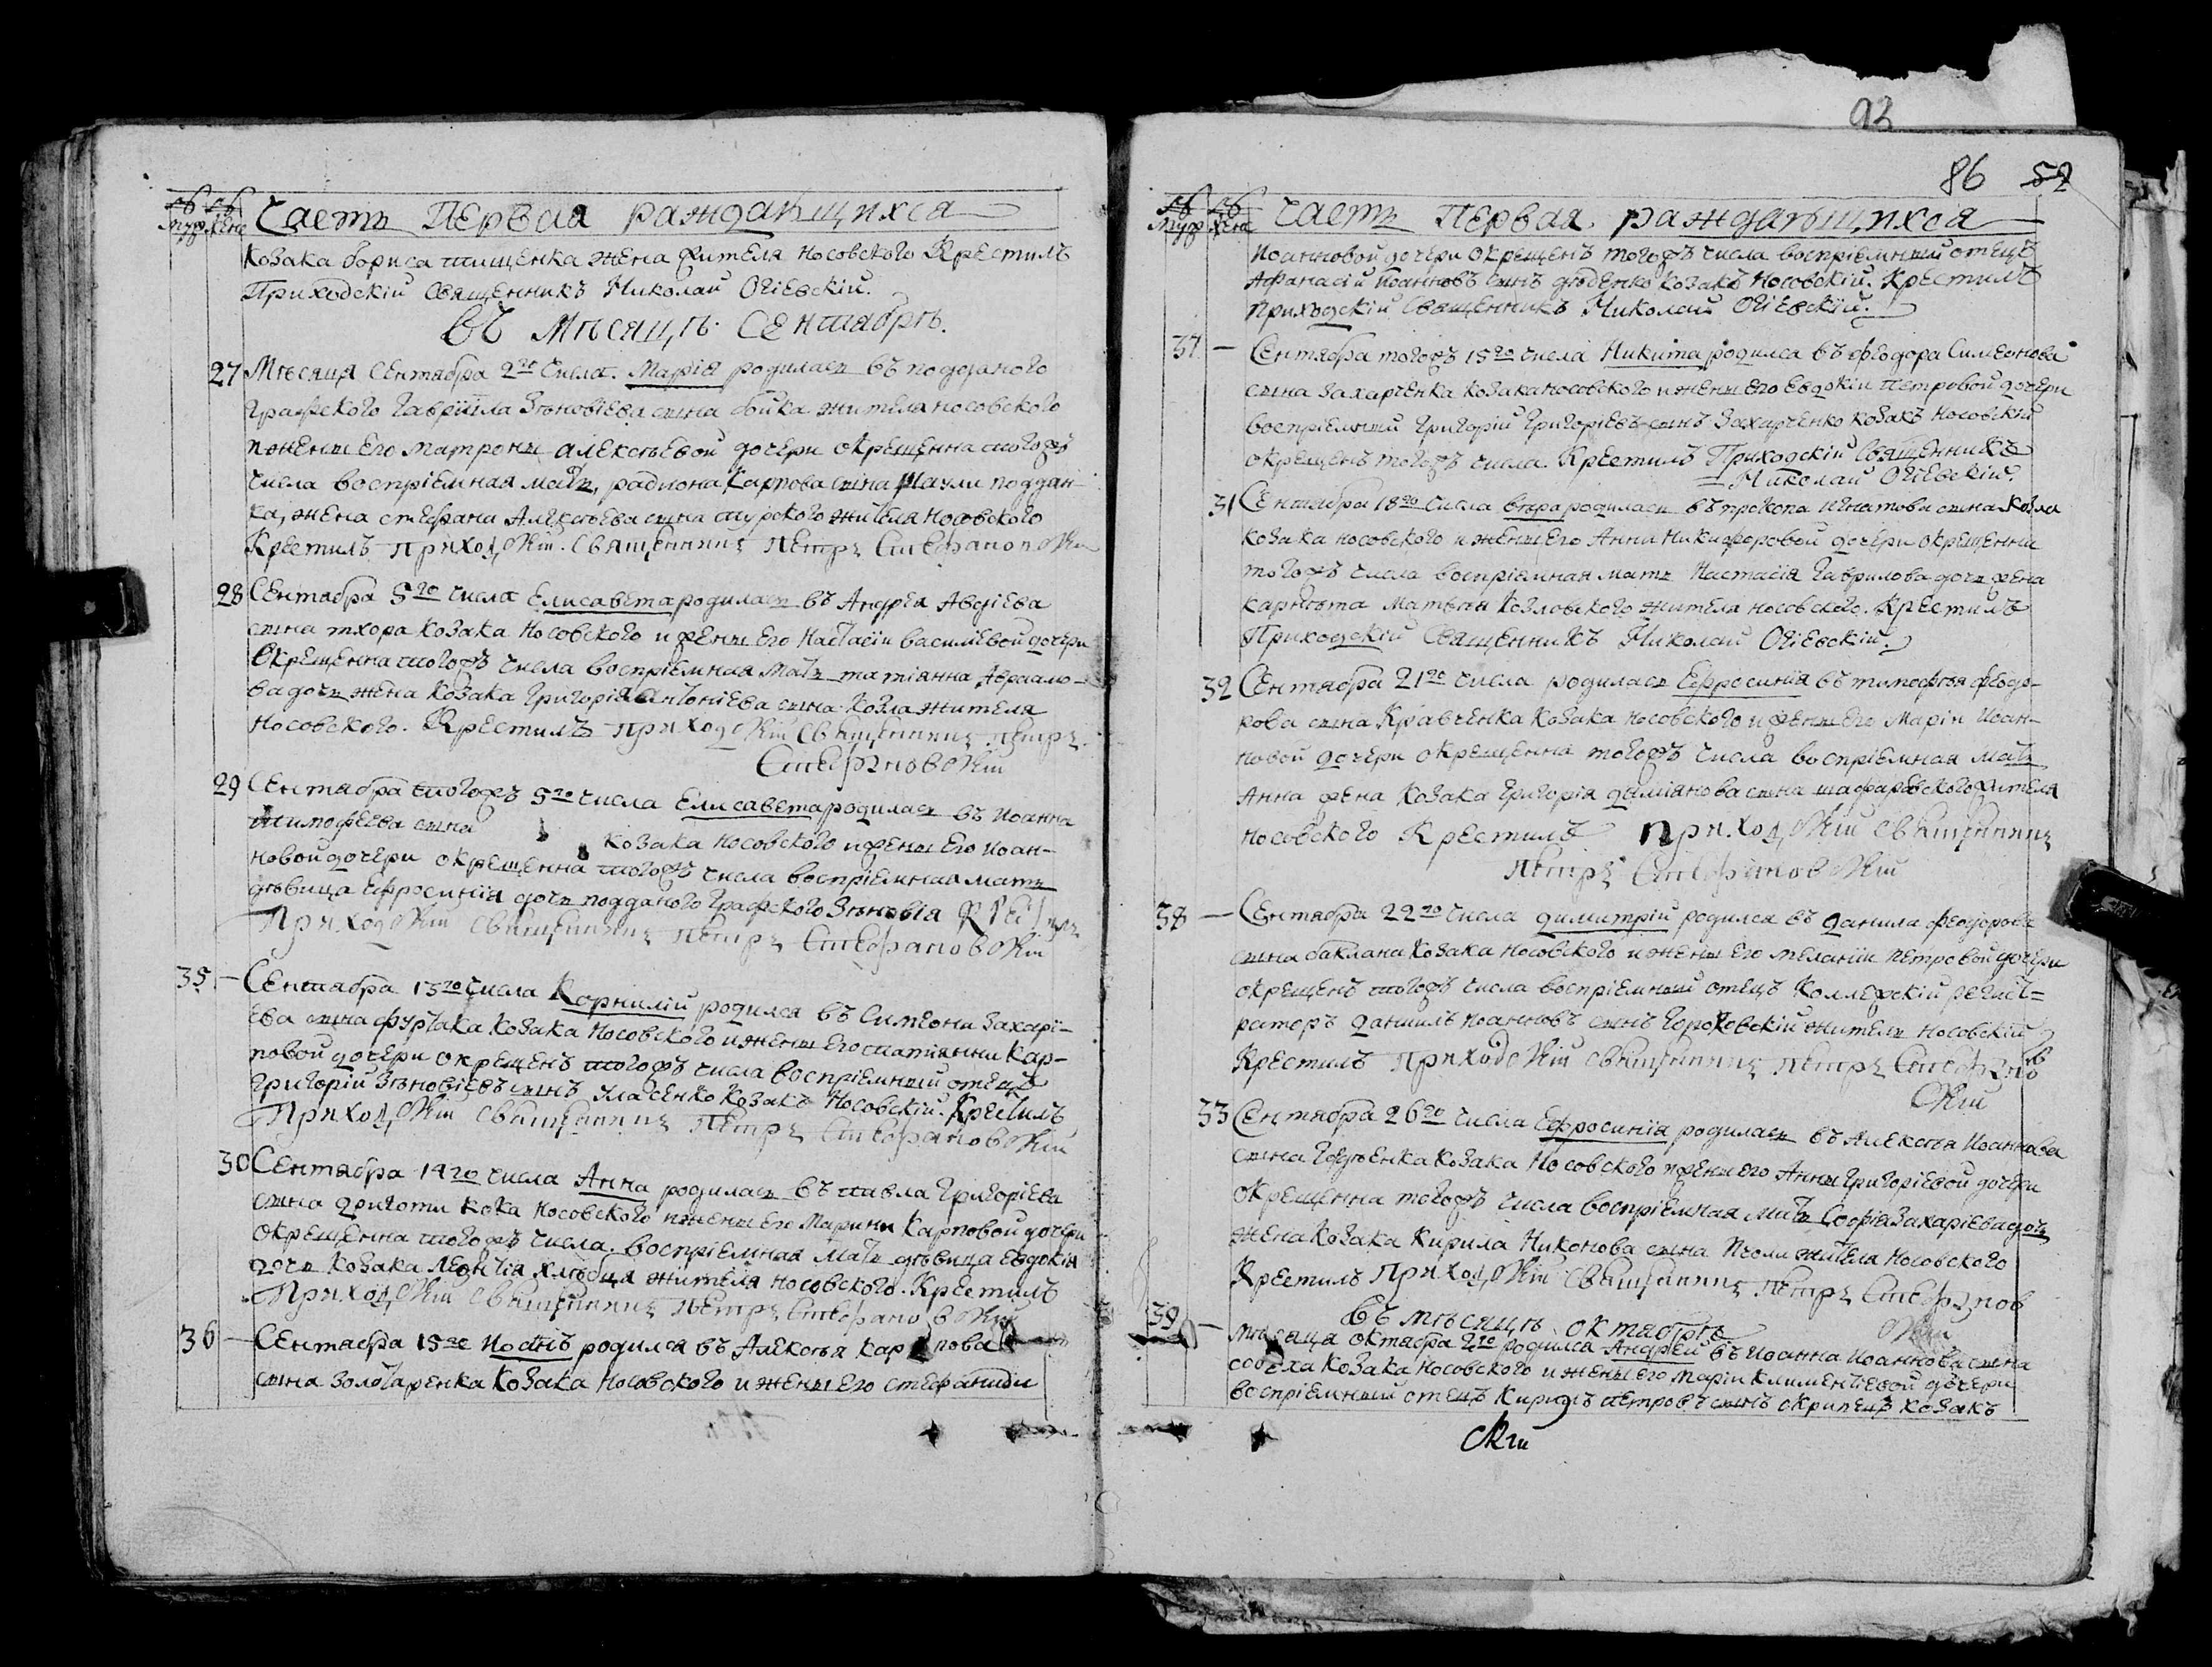 93
86 52
муж жен Часть Первая раждающихся
козака бориса тищенка жена жителя носовского Крестилъ
Приходскій Священникъ Николай Огіевскій.
Въ Мѣсяцѣ. Сентябрѣ.
27 Мѣсяця Сентября 2го Числа. Марія родилась въ подданого
Графского Гавріила Зѣновіева сына бойка жителя носовского
и жены Его матроны алексѣевой дочери окрещенна тогожъ
числа воспріемная мать, радиона Карпова сына поддан-
ка, жена стефана Алексѣева сына турского жителя носовского
Крестилъ приходскій священникъ Петръ Стефановскій
28 Сентября 5го числа Елисавета родилась въ Андрея Авдіева
сына тхора козака Носовского и жены Его Настасіи василіевой дочери
Окрещенна тогожъ числа воспріемная мать татіянна Авраамо-
ва дочь жена козака Григорія Антоніева сына козла жителя
носовского. Крестилъ приходскій священникъ петръ
Стефановскій
29 Сентября тогожъ 5го числа Елисавета родилась въ Иоанна
тимофеева сына козака носовского и жены Его иоан-
новой дочери окрещенна тогожъ числа воспріемная мать
дѣвица Ефросинія дочь подданого Графского Зѣновія Крестилъ
Приходскій священникъ петръ Стефановскій
35 — Сентября 13го числа Корнилій родился въ Симеона Захарі-
ева сына фурсака козака носовского и жены его татіянны Кар-
повой дочери окрещенъ тогожъ числа воспріемный отецъ
Григорій Зѣновіевъ сынъ Уласенко козакъ Носовскій. Крестилъ
Приходскій священникъ петръ Стефановскій
30 Сентября 14го числа Анна родилась въ павла Григоріева
сына дриготи кока носовского и жены Его Марины Карповой дочери
окрещенна тогожъ числа. воспріемная мать дѣвица Евдокія
дочь козака Леонтія хлѣбця жителя носовского. Крестилъ
Приходскій священникъ петръ Стефановскій
36 — Сентября 15го Иоанъ родился въ Алексѣя карпова
сына золотаренка козака носовского и жены Его стефаниди
муж жен Часть Первая раждающихся
Иоанновой дочери окрещенъ тогожъ числа воспріемный отецъ
Афанасій иоанновъ сынъ дѣденко козакъ носовскій. Крестилъ
Приходскій Священникъ Николай Огіевскій.
37 — Сентября тогожъ 15го числа Никита родился въ феодора Симеонова
сына захарченка козака носовского и жены Его Евдокіи петровой дочери
воспріемный Григорій Григоріевъ сынъ Захарченко козакъ носовскій
окрещенъ тогожъ числа. Крестилъ Приходскій Священникъ
Николай Огіевскій.
31 Сентября 18го числа вѣра родилась въ прокопа игнатова сына козла
козака носовского и жены Его Анны Никифоровой дочери окрещенна
тогожъ числа воспріемная мать Настасія Гаврилова дочь жена
карнѣта Матвѣя Козловского жителя носовского. Крестилъ
Приходскій Священникъ Николай Огіевскій.
32 Сентября 21го числа родилась Ефросинія въ тимофѣя феодо-
рова сына Кравченка козака носовского и жены Его Маріи Иоан-
новой дочери окрещенна тогожъ числа воспріемная мать
Анна жена козака григорія даміянова сына шафаревского жителя
носовского Крестилъ Приходскій священникъ
петръ Стефановскій
38 — Сентября 22го числа димитрій родился въ данила феодорова
сына баклана козака носовского и жены Его меланіи петровой дочери
окрещенъ тогожъ числа воспріемный отецъ Коллежскій регист=
раторъ даниилъ иоанновъ сынъ Гороховскій житель носовскій
Крестилъ Приходскій священникъ петръ Стефанов
скій
33 Сентября 26го числа Ефросинія родилась въ Алексѣя Иоаннова
сына козака Носовского и жены его Анны Григоріевой дочери
Окрещенна тогожъ числа воспріемная мать Софія Захаріева дочь
жена козака Кирила Никонова сына Пчоли жителя носовского
Крестилъ Приходскій священникъ петръ Стефанов
скій
въ мѣсяцѣ октябрѣ
39 — мѣсяца октября 2го родился Андрей въ Иоанна Иоаннова сына
козака носовского и жены его маріи климентіевой дочери
воспріемный отецъ Кирилъ петровъ сынъ скрипецъ козакъ
скій